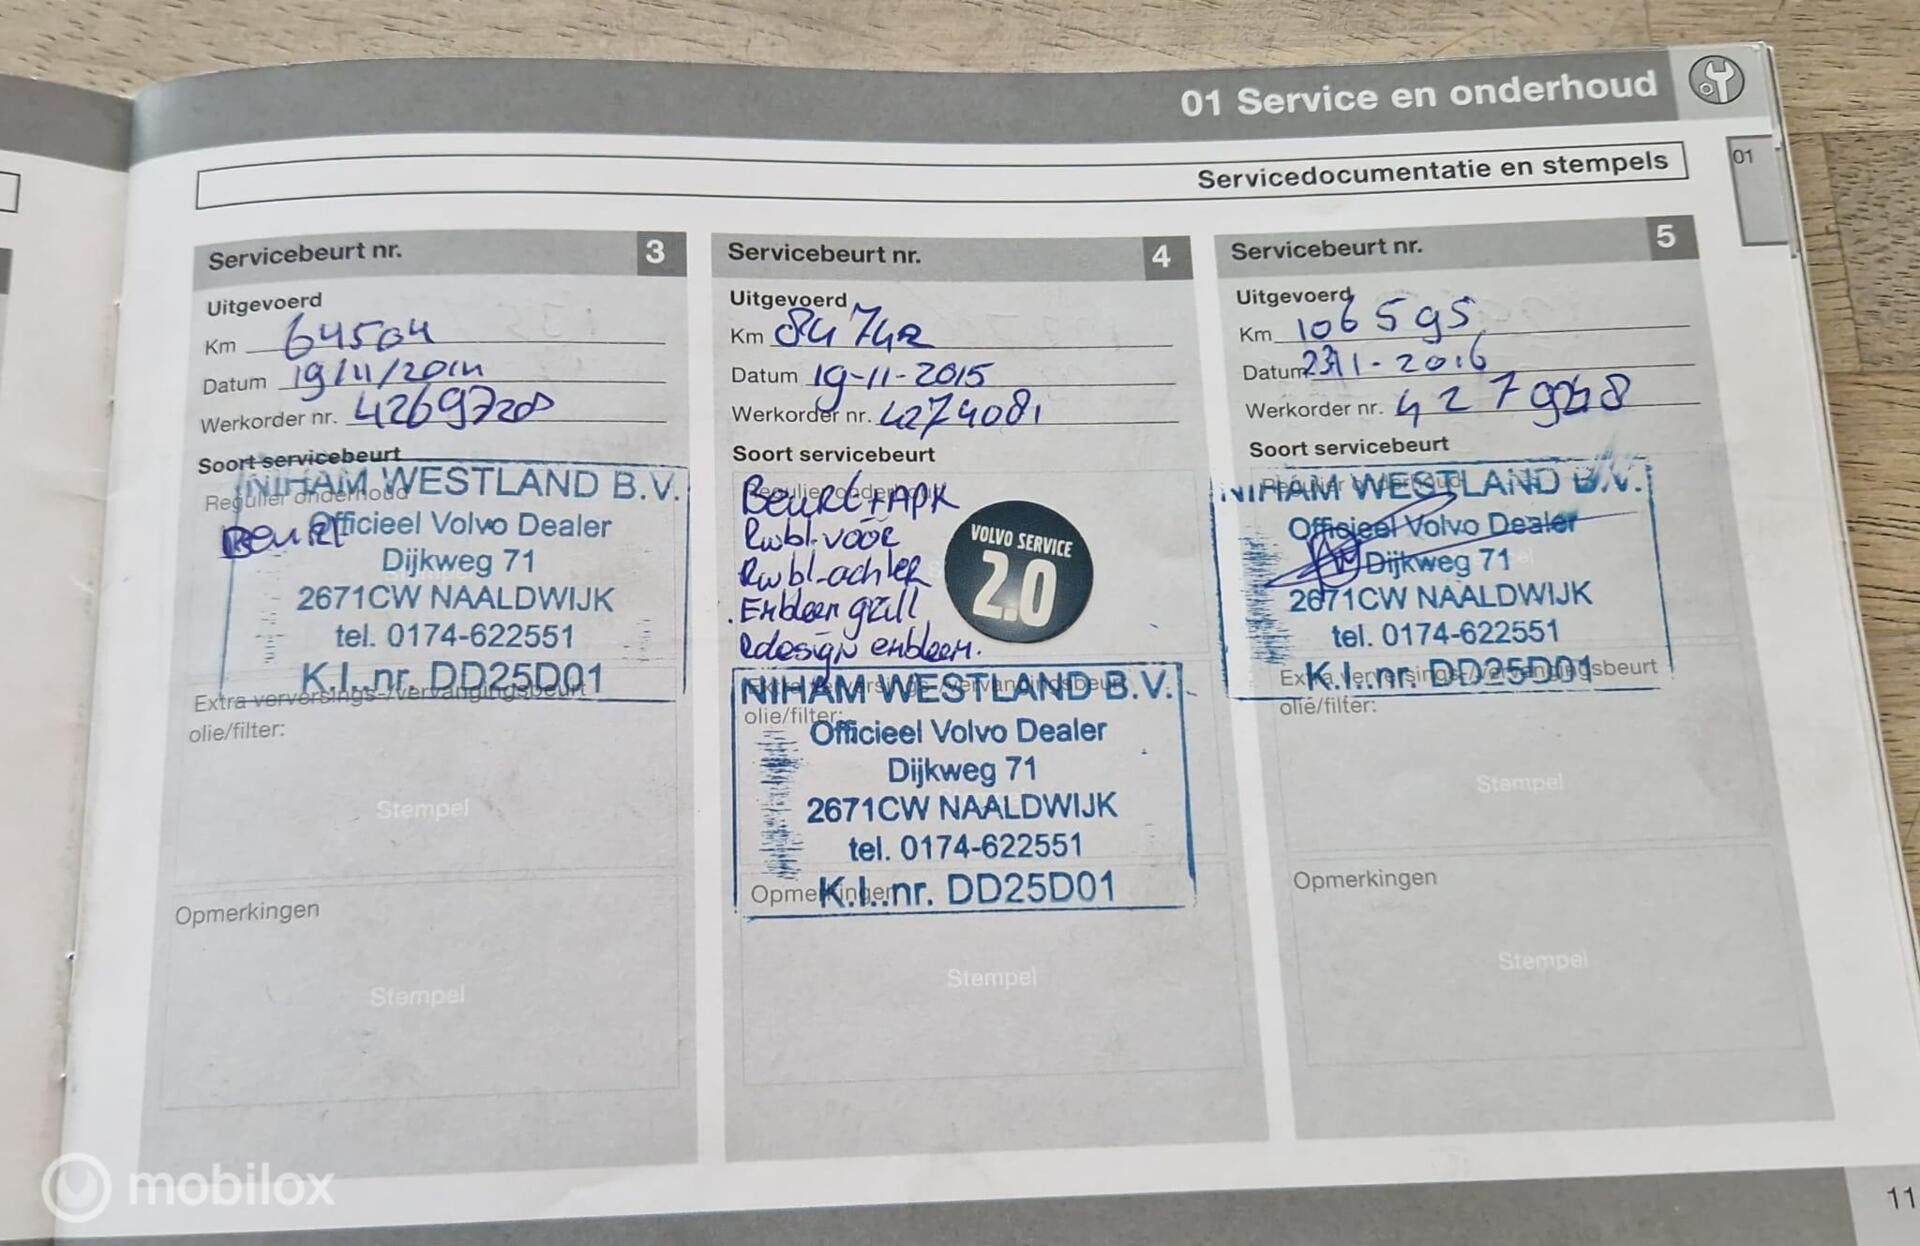 01 Service en onderhoud
Servicedocumentatie en stempels
01
Servicebeurt nr. 3
Uitgevoerd
Km 64504
Datum 19/11/2014
Werkorder nr. 4269728
Soort servicebeurt
Regulier onderhoud
Beurt
NIHAM WESTLAND B.V.
Officieel Volvo Dealer
Dijkweg 71
2671CW NAALDWIJK
tel. 0174-622551
K.I..nr. DD25D01
Extra verversings-/vervangingsbeurt
olie/filter:
Stempel
Opmerkingen
Stempel
Servicebeurt nr. 4
Uitgevoerd
Km 84742
Datum 19-11-2015
Werkorder nr. 4274081
Soort servicebeurt
Regulier onderhoud
Beurt + APK
Rwbl. voor
Rwbl-achter
Embleem grill
Rdesign embleem.
VOLVO SERVICE
2.0
NIHAM WESTLAND B.V.
Officieel Volvo Dealer
Dijkweg 71
2671CW NAALDWIJK
tel. 0174-622551
K.I..nr. DD25D01
Extra verversings-/vervangingsbeurt
olie/filter:
Opmerkingen
Stempel
Servicebeurt nr. 5
Uitgevoerd
Km 106595
Datum 23/1-2016
Werkorder nr.
Soort servicebeurt
Regulier onderhoud
NIHAM WESTLAND B.V.
Officieel Volvo Dealer
Dijkweg 71
2671CW NAALDWIJK
tel. 0174-622551
K.I..nr. DD25D01
Extra verversings-/vervangingsbeurt
olie/filter:
Stempel
Opmerkingen
Stempel
11
mobilox